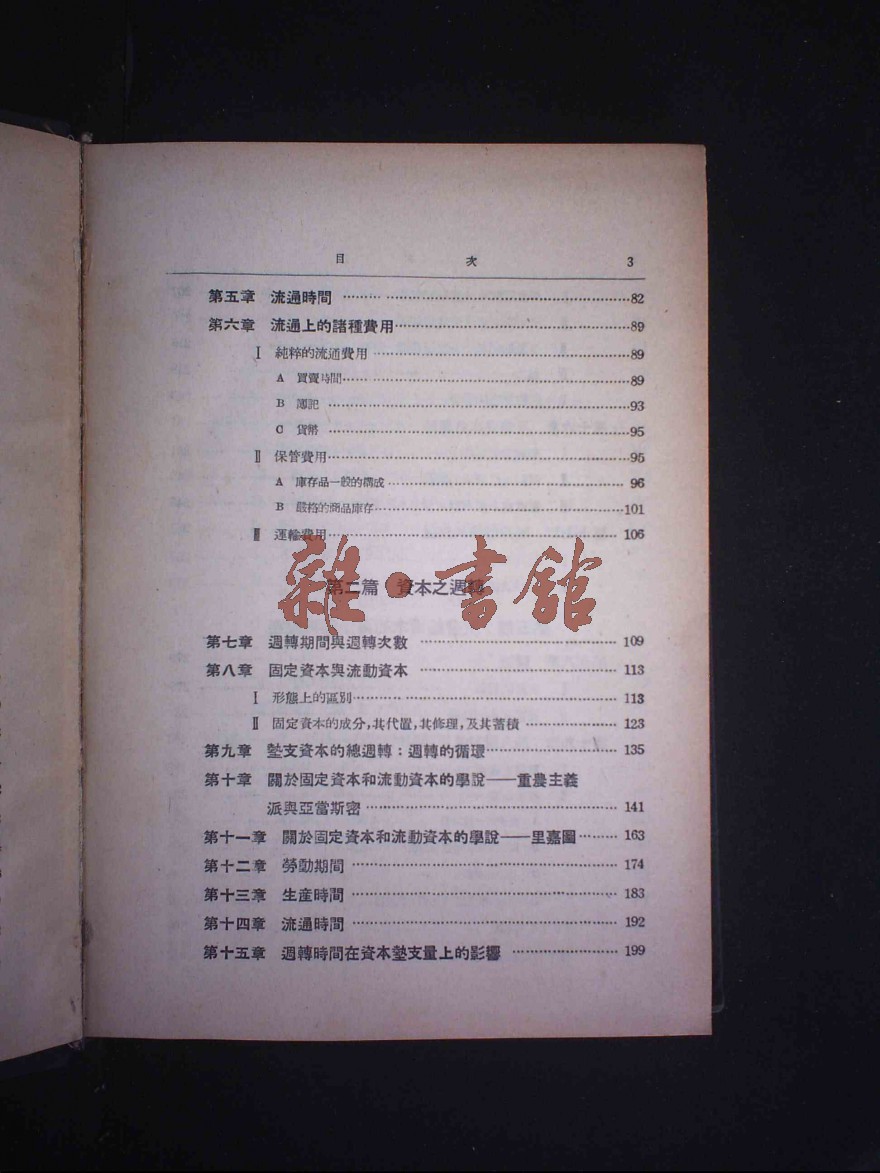 目 次 3
第五章 流通時間 ………………………………………82
第六章 流通上的諸種費用………………………………89
Ⅰ 純粹的流通費用 ………………………………………89
A 買賣時間…………………………………………89
B 簿記 ……………………………………………93
C 貨幣 ……………………………………………95
Ⅱ 保管費用…………………………………………………95
A 庫存品一般的構成 ………………………………… 96
B 嚴格的商品庫存……………………………………101
Ⅲ 運輸費用………………………………………………… 106
第二篇 資本之週轉
雜·書館
第七章 週轉期間與週轉次數 ………………………… 109
第八章 固定資本與流動資本 ………………………… 113
Ⅰ 形態上的區別………………………………………… 113
Ⅱ 固定資本的成分,其代置,其修理,及其蓄積 ………… 123
第九章 墊支資本的總週轉:週轉的循環……………… 135
第十章 關於固定資本和流動資本的學說——重農主義
派與亞當斯密 ……………………………… 141
第十一章 關於固定資本和流動資本的學說——里嘉圖……… 163
第十二章 勞動期間 …………………………………… 174
第十三章 生産時間 …………………………………… 183
第十四章 流通時間 …………………………………… 192
第十五章 週轉時間在資本墊支量上的影響 …………… 199